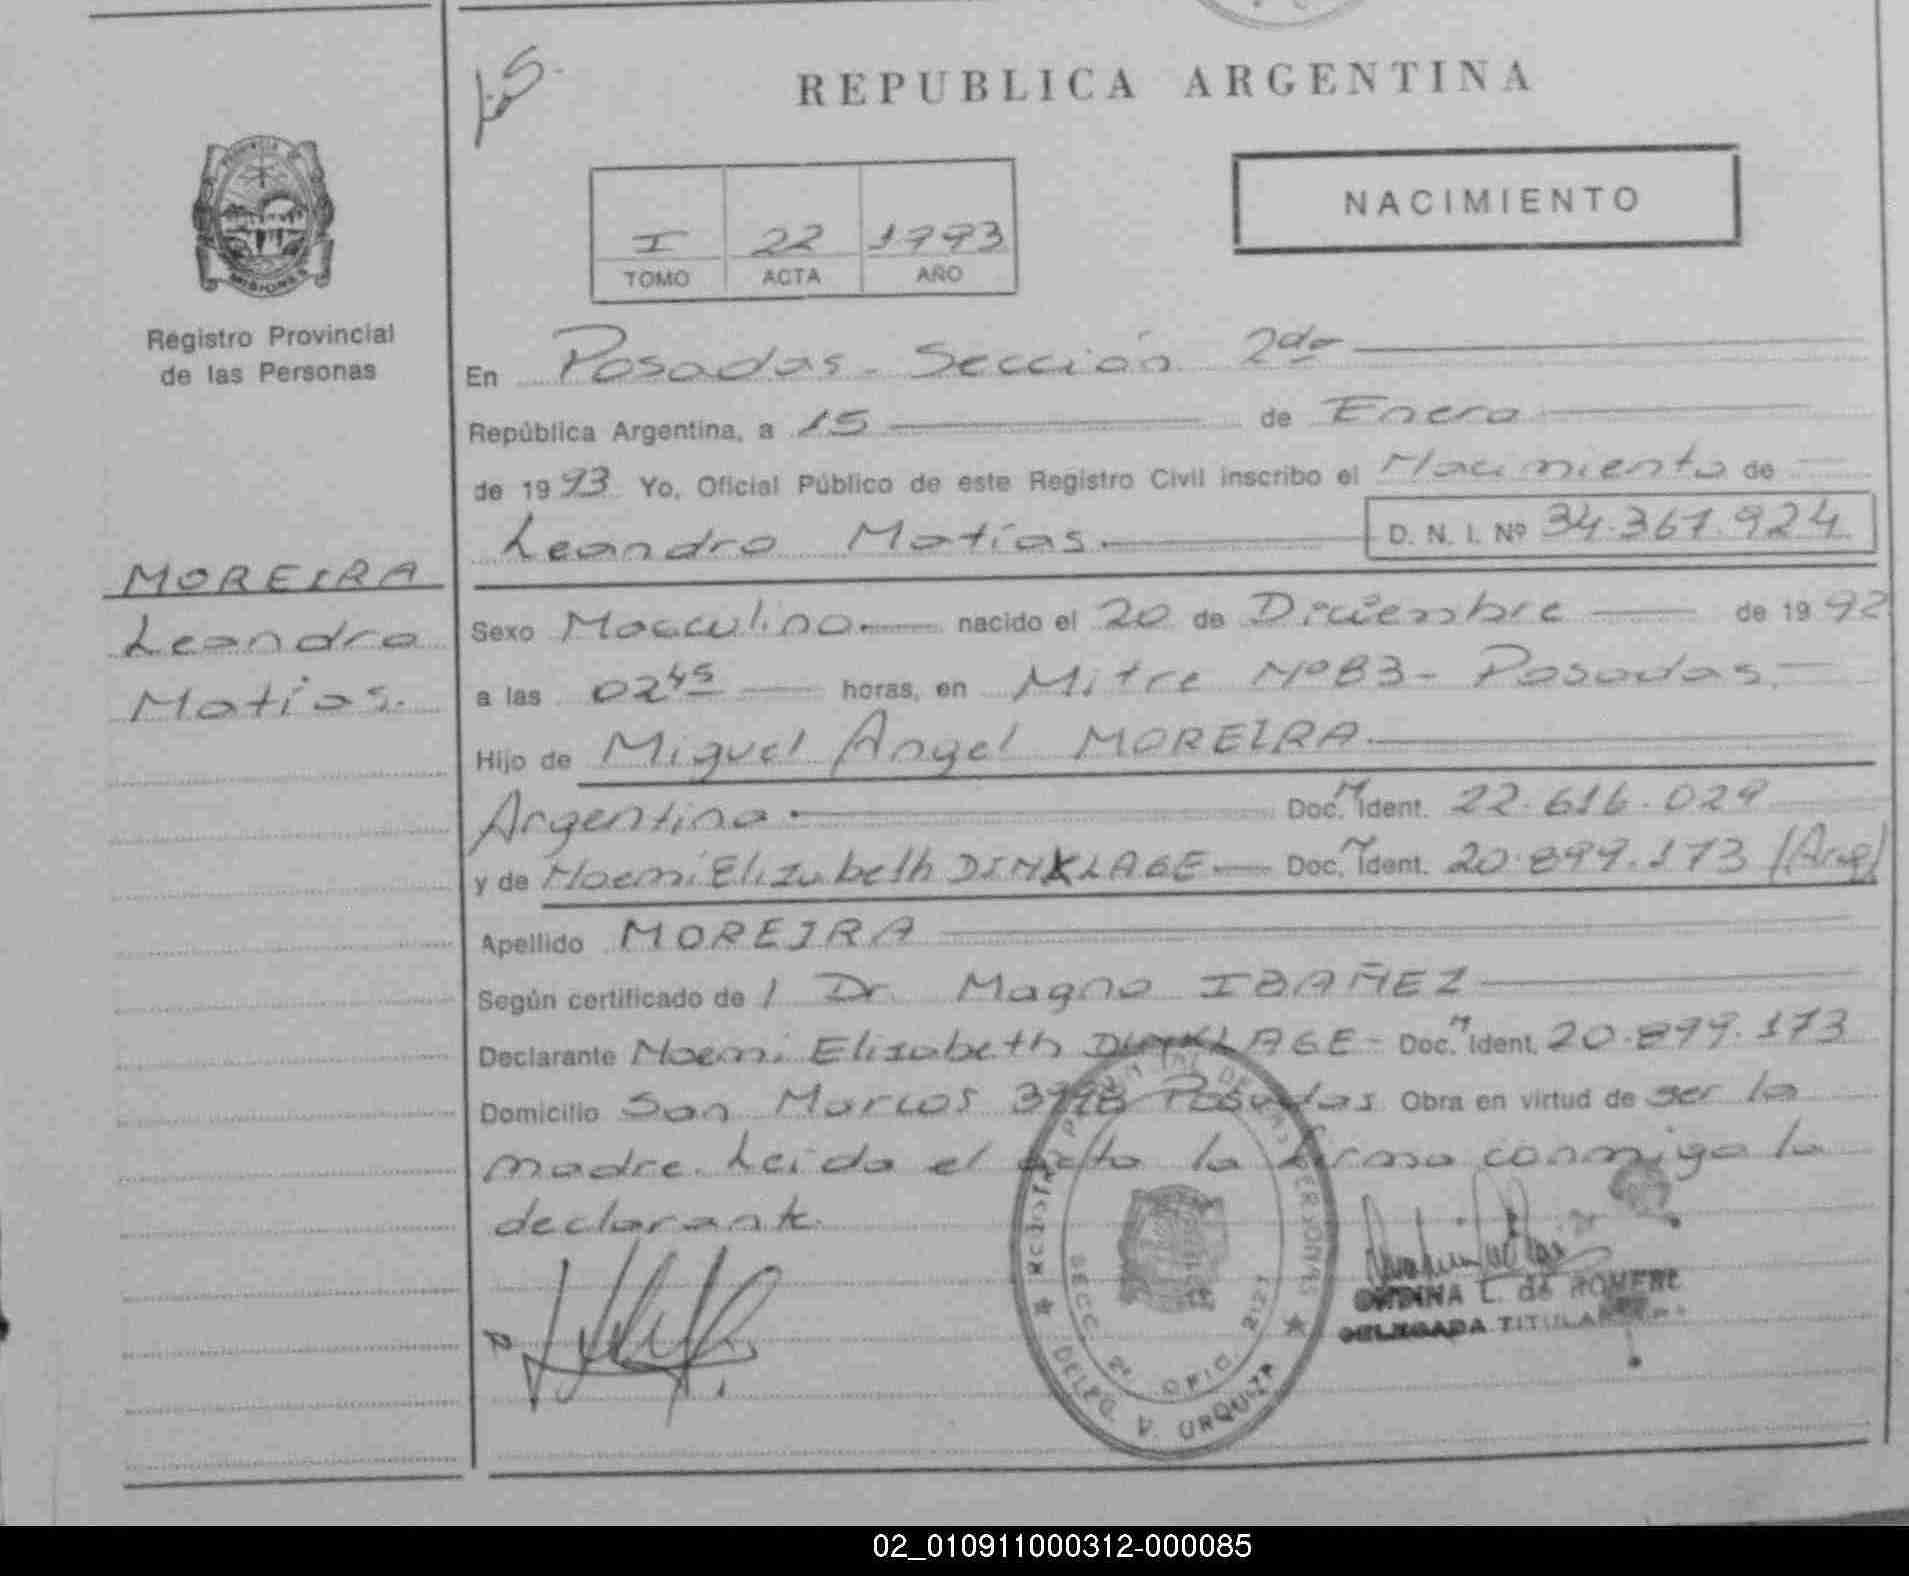 REPUBLICA ARGENTINA
NACIMIENTO
I 22 1993
TOMO ACTA AÑO
PROVINCIA DE
MISIONES
Registro Provincial
de las Personas
MOREIRA
Leandro
Matías.
En Posadas - Sección 2da
República Argentina, a 15 de Enero
de 1993 Yo, Oficial Público de este Registro Civil inscribo el Nacimiento de
Leandro Matías. D. N. I. Nº 34.367.924
Sexo Masculino. nacido el 20 de Diciembre de 1992
a las 02 45 horas, en Mitre Nº 83 - Posadas.
Hijo de Miguel Angel MOREIRA
Argentino. Doc. M Ident. 22.616.029
y de Noemi Elizabeth DINKLAGE Doc. M Ident. 20.899.173 (Arg)
Apellido MOREIRA
Según certificado de l Dr. Magno IBAÑEZ
Declarante Noemi Elizabeth DINKLAGE - Doc. M Ident. 20.899.173
Domicilio San Marcos Posadas Obra en virtud de ser la
madre. Leida el acta la firma conmigo la
declarante.
DE LAS PERSONAS
SECC. 2ª OFIC. 2121
DELEG. V. URQUIZA
L. de ROMERO
DELEGADA TITULAR
02_010911000312-000085